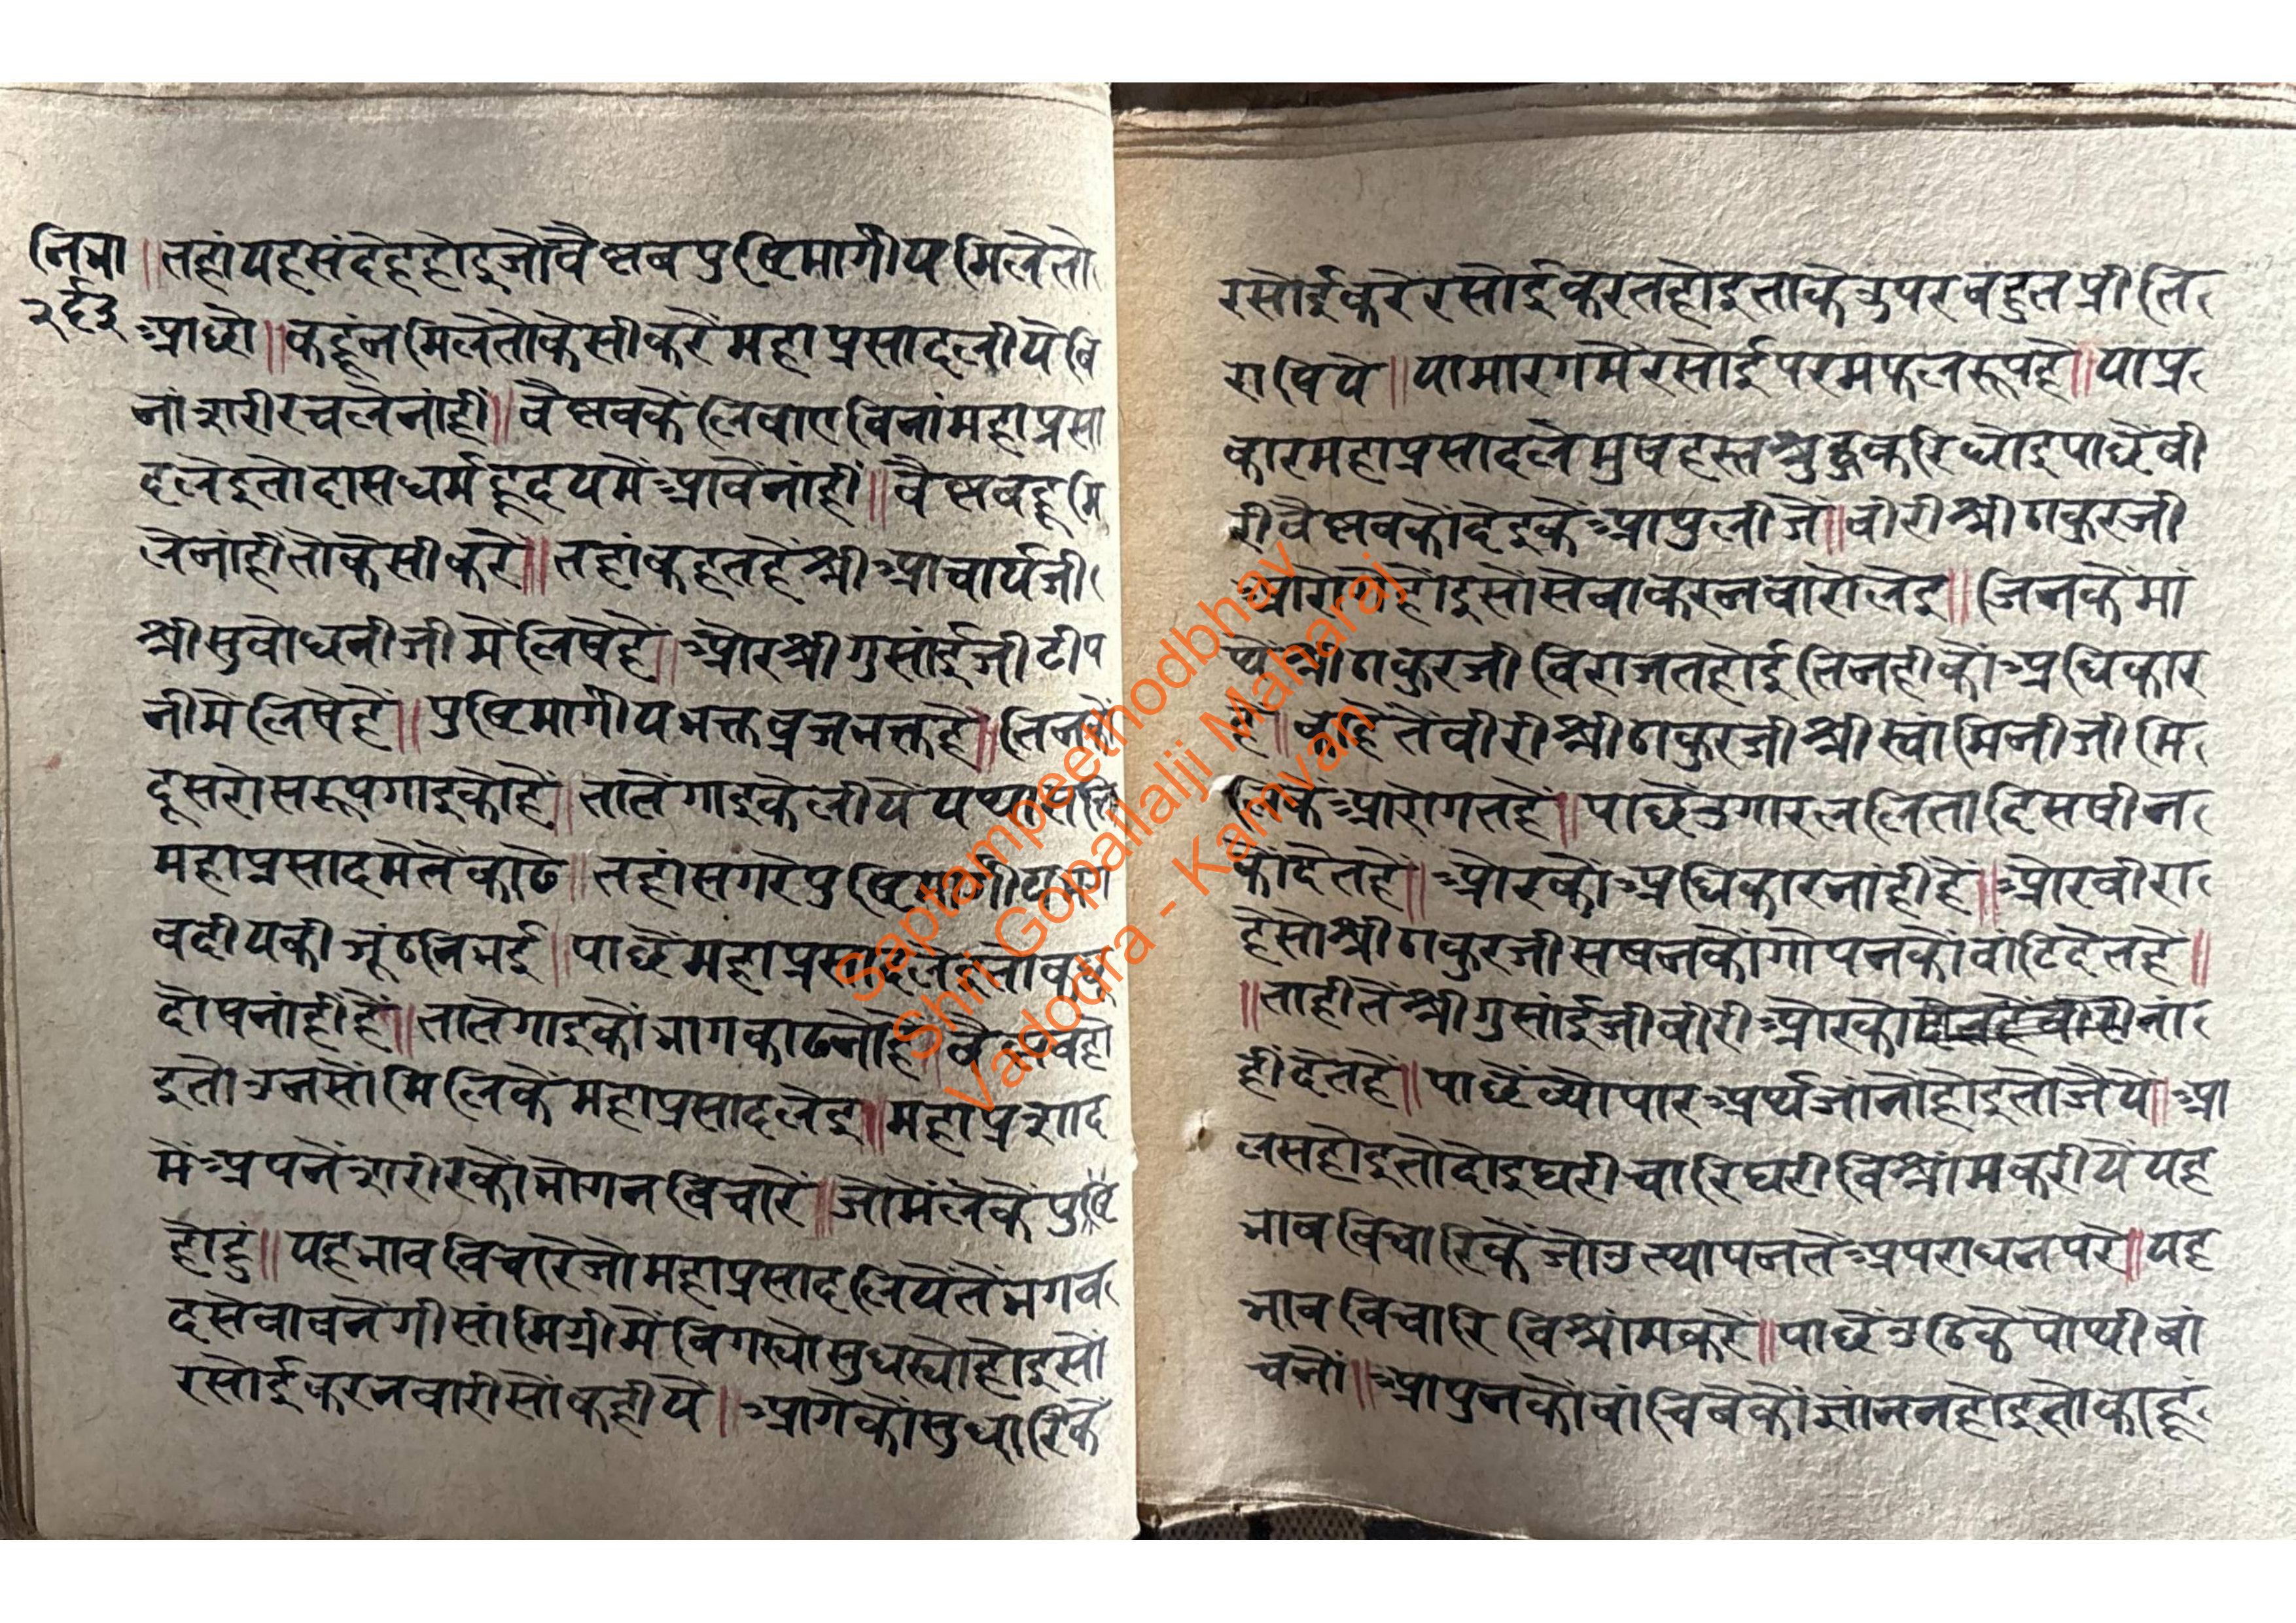 नित्रा
२६३
॥तहांयहसंदेहहोइजोवैष्णवपुष्टिमार्गीयमिलेतो
आछौ॥कहूंनमिलेतौकेसीकरेंमहाप्रसादलीयेबि
नांशरीरचलेनांहीं॥वैष्णवकें लिवाएविनांमहाप्रसा
दलेइतोदासधर्महृदयमेंआवेनांहीं॥वैष्णवहूमि
लेनांहीतोकेसीकरें॥तहांकहतहेंश्रीआचार्यजी
श्रीसुबोधनीजीमेंलिषेहें॥औरश्रीगुसांईजीटीप
नीमेंलिषेहें॥पुष्टिमार्गीयभक्तव्रजभक्तहै॥तिनकों
दूसरोसरूपगाइकोहें॥तातेंगाइकेलीयें
महाप्रसादमेतेंकाढे॥तहांसगरेपुष्टिमार्गीय
वदीयकीजूंठनिभई॥पाछेंमहाप्रसादलेइतो
दोषनांहींहें॥तातेगाइकोंभागकाढनोहै॥वैष्णवहो
इतोउनसोंमिलिकेंमहाप्रसादलेइ॥महाप्रशाद
मेंअपनेंशरीरकोभोगनविचारें॥जोमेंलेकेंपुष्टि
होहुं॥यहभावविचारेजोमहाप्रसादलियेतेंभगव
दसेवावनेगीसांमिग्रीमेंविगस्योसुधस्योहोइसों
रसोईकरनवारीसोंकहीयें॥आगेकोंसुधारिकें
रसोईकरेरसोईकरतहोइताकेउपरबहुतप्रीति
राषिये॥यामारगमेंरसोईपरमफलरूपहै॥याप्र
कारमहाप्रसादलेमुषहस्तश्रुद्धकरिधोइपाछेंबी
रीवैष्णवकोंदेइकेंआपुलीजें॥वीरीश्रीठाकुरजी
आरोगेहोंइसोसेवाकरनवारोलेइ॥जिनकेंमां
थेंश्रीठाकुरजीविराजतहोईतिनहीकोंअधिकार
हें॥काहेतेंवीरीश्रीठाकुरजीश्रीस्वांमिनीजीमि
लिकेंआरोगतहें॥पाछेंउगारललितादिसषीन
कोंदेतहे॥औरकोंअधिकारनांहींहें॥औरवीरा
हेसोश्रीठाकुरजीसषनकोंगोपनकोंवांटिदेतहे॥
॥ताहीतेंश्रीगुसांईजीवीरीऔरकोंनां
हींदेतहे॥पाछेंव्योपारअर्थजांनोंहोइतोजैये॥आ
लसहोइतोदोइघरीचारिघरीविश्रांमकरीयेंयह
भावविचारिकेंजोउत्थापनतेंअपराधनपरे॥यह
भावविचारिविश्रांमकरें॥पाछेंउठिकेंपोथीबां
चनों॥आपुनकोबांचिवेकोंग्यांननहोइतोकाहूं